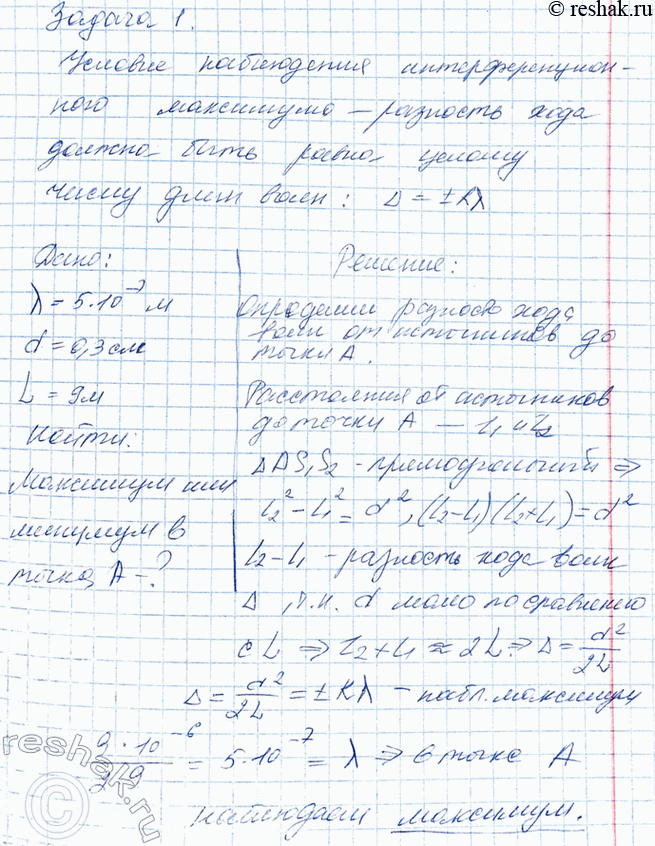 © reshak.ru
Задача 1.
Условие наблюдения интерференцион-
ного максимума – разность хода
должна быть равна целому
числу длин волн: Δ = ±kλ
Дано:
λ = 5·10⁻⁷ м
d = 0,3 см
L = 9 м
Найти:
Максимум или
минимум в
точке A – ?
Решение:
Определим разность хода
волн от источников до
точки A.
Расстояния от источников
до точки A – L₁ и L₂
ΔAS₁S₂ - прямоугольный ⇒
L₂² – L₁² = d², (L₂–L₁)(L₂+L₁) = d²
L₂–L₁ - разность хода волн
Δ, т.к. d мало по сравнению
с L ⇒ L₂+L₁ ≈ 2L ⇒ Δ = d²/2L
Δ = d²/2L = ±kλ – набл. максимум
9·10⁻⁶/2·9 = 5·10⁻⁷ = λ ⇒ в точке A
наблюдаем максимум.
reshak.ru